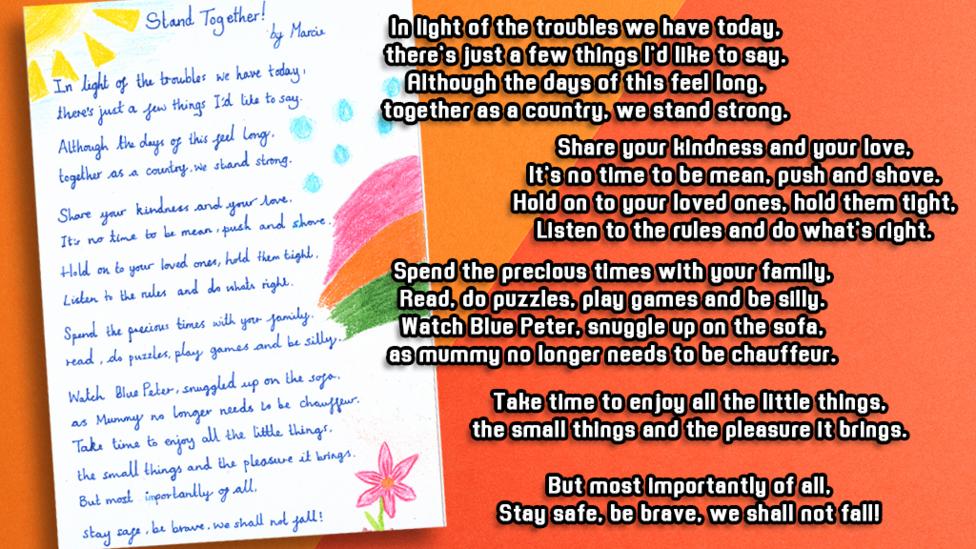 Stand Together!
by Marcie
In light of the troubles we have today,
there's just a few things I'd like to say.
Although the days of this feel long,
together as a country, we stand strong.
Share your kindness and your love.
It's no time to be mean, push and shove.
Hold on to your loved ones, hold them tight,
Listen to the rules and do whats right.
Spend the precious times with your family.
read, do puzzles, play games and be silly.
Watch Blue Peter, snuggled up on the sofa.
as Mummy no longer needs to be chauffeur.
Take time to enjoy all the little things.
the small things and the pleasure it brings.
But most importantly of all,
stay safe, be brave, we shall not fall!
In light of the troubles we have today,
there's just a few things I'd like to say.
Although the days of this feel long,
together as a country, we stand strong.
Share your kindness and your love,
It's no time to be mean, push and shove.
Hold on to your loved ones, hold them tight,
Listen to the rules and do what's right.
Spend the precious times with your family,
Read, do puzzles, play games and be silly.
Watch Blue Peter, snuggle up on the sofa,
as mummy no longer needs to be chauffeur.
Take time to enjoy all the little things,
the small things and the pleasure it brings.
But most importantly of all,
Stay safe, be brave, we shall not fall!